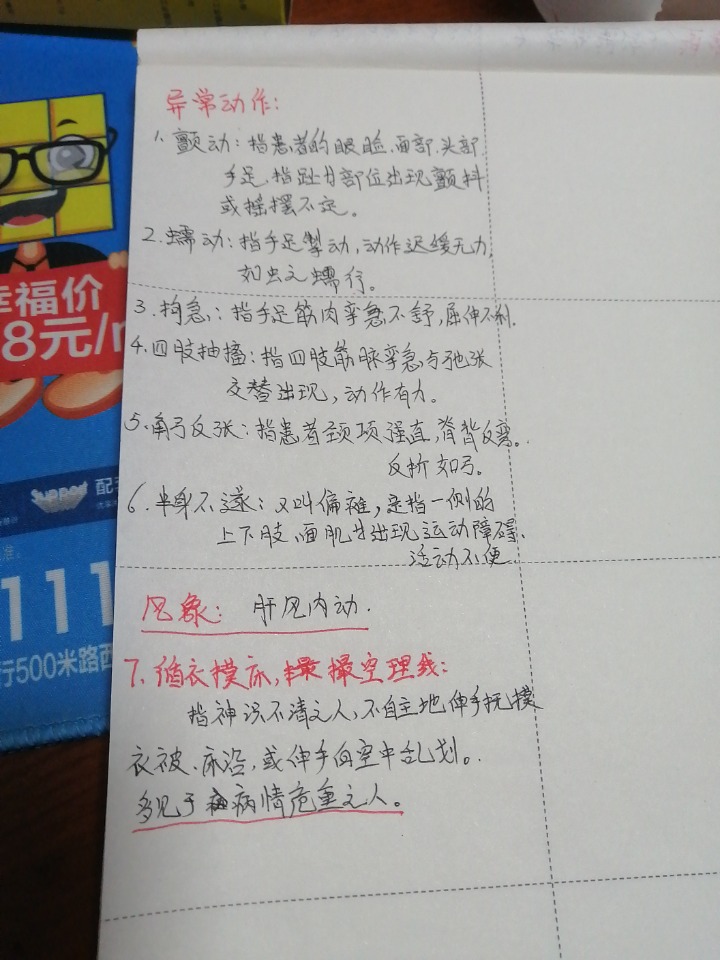 幸福价
8元/r
Support
配
111
行500米路西
异常动作:
1、颤动:指患者的眼睑、面部、头部
手足、指趾等部位出现颤抖
或摇摆不定。
2.蠕动:指手足掣动,动作迟缓无力,
如虫之蠕行。
3.拘急:指手足筋肉挛急不舒,屈伸不利.
4.四肢抽搐:指四肢筋脉挛急与弛张
交替出现,动作有力。
5.角弓反张:指患者颈项强直,脊背反弯。
反折如弓。
6.半身不遂:又叫偏瘫,是指一侧的
上下肢、面肌等出现运动障碍.
活动不便
风象: 肝风内动.
7.循衣摸床,撮空理线:
指神识不清之人,不自主地伸手抚摸
衣被、床沿,或伸手向空中乱划。
多见于病情危重之人。